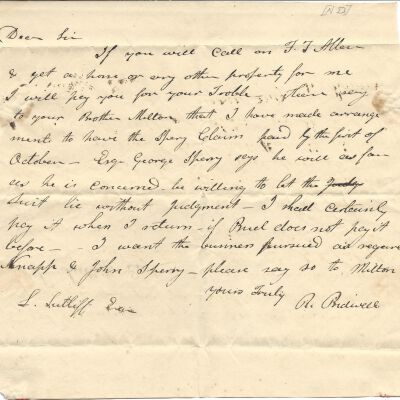 [N 52]
Dear Sir
If you will call on F. T. Allen
& get a horse or any other property for me
I will pay you for your Troble - then say
to your Brother Milton, that I have made arrange
ments to have the Spery Claim paid by the first of
October - Esqr George Spery says he will as far
as he is concerned be willing to let the
Suit lie without judgment - I shall certainly
pay it when I return - if Ruel does not pay it
before - - I want the business pursued as regards
Knapp & John Sperry - please say so to Milton
Yours Truly
L. Sutliff Esqr
R. Bidwell